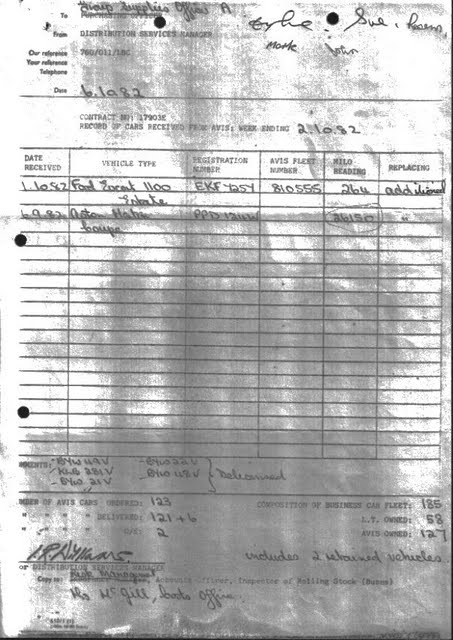 Group Supplies Officer A
To PURCHASING OFFICER
From DISTRIBUTION SERVICES MANAGER
Sue.
Mark John
Our reference 760/011/LBC
Your reference
Telephone
Date 6.10.82
CONTRACT NO: 17903E
RECORD OF CARS RECEIVED FROM AVIS: WEEK ENDING 2.10.82
DATE RECEIVED VEHICLE TYPE REGISTRATION NUMBER AVIS FLEET NUMBER MILO READING REPLACING
1.10.82 Ford Escort 1100 EKF 425Y 810555 264 additional
Estate
6.9.82 26150 "
Coupe
COMMENTS: - BYW 49V - BYW 22V
- KWB 281V - BYW 48V Delicenced
- BYW 21V
NUMBER OF AVIS CARS ORDERED: 123 COMPOSITION OF BUSINESS CAR FLEET: 185
" " " DELIVERED: 121 + 6 L.T. OWNED: 58
" " " O/S: 2 AVIS OWNED: 127
includes 2 returned vehicles.
for DISTRIBUTION SERVICES MANAGER
Copy to: Risk Management, Accounts Officer, Inspector of Rolling Stock (Buses)
Ms McGill, Costs Office.